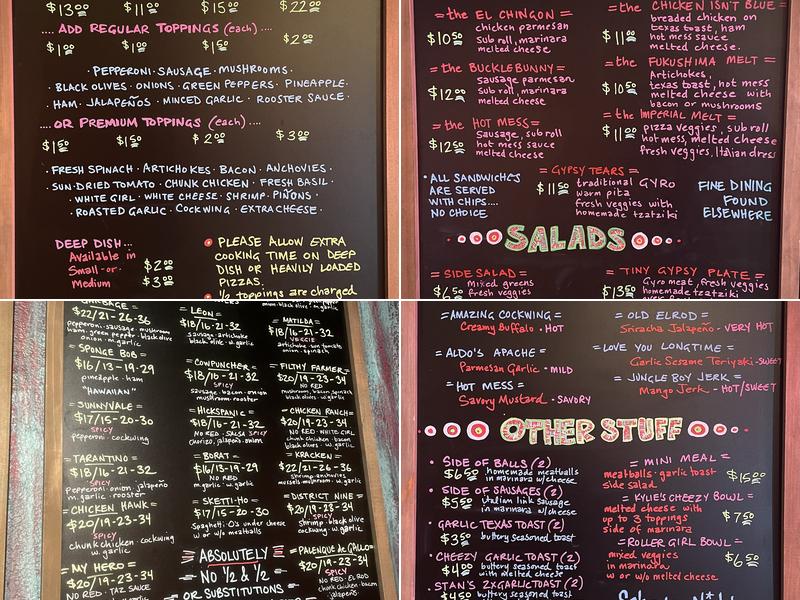 $13.00 $11.50 $15.50 $22.00
.... ADD REGULAR TOPPINGS (each) ....
$1.00 $1.00 $1.50 $2.00
· PEPPERONI · SAUSAGE · MUSHROOMS ·
· BLACK OLIVES · ONIONS · GREEN PEPPERS · PINEAPPLE ·
· HAM · JALAPEÑOS · MINCED GARLIC · ROOSTER SAUCE ·
... OR PREMIUM TOPPINGS (each) ....
$1.50 $1.50 $2.00 $3.00
· FRESH SPINACH · ARTICHOKES · BACON · ANCHOVIES ·
· SUN-DRIED TOMATO · CHUNK CHICKEN · FRESH BASIL ·
· WHITE GIRL · WHITE CHEESE · SHRIMP · PIÑONS ·
· ROASTED GARLIC · COCKWING · EXTRA CHEESE ·
DEEP DISH...
Available in
Small - or -
Medium
$2.00
$3.00
PLEASE ALLOW EXTRA
COOKING TIME ON DEEP
DISH OR HEAVILY LOADED
PIZZAS.
½ toppings are charged
= the EL CHINGON =
$10.50 chicken parmesan
Sub roll, marinara
melted cheese
= the BUCKLEBUNNY =
$12.00 sausage parmesan
Sub roll, marinara
melted cheese
= the HOT MESS =
$12.50 Sausage, sub roll
hot mess sauce
melted cheese
= the CHICKEN ISN'T BLUE =
$11.00 breaded chicken on
texas toast, ham
hot mess sauce
melted cheese.
= the FUKUSHIMA MELT =
$10.50 Artichokes,
texas toast, hot mess
melted cheese with
bacon or mushrooms
= the IMPERIAL MELT =
$11.00 pizza veggies, sub roll
hot mess, melted cheese
fresh veggies, Italian dress
· ALL SANDWICHES
ARE SERVED
WITH CHIPS....
NO CHOICE
= GYPSY TEARS =
$11.50 traditional GYRO
warm pita
fresh veggies with
homemade tzatziki
FINE DINING
FOUND
ELSEWHERE
SALADS
= SIDE SALAD =
Mixed greens
fresh veggies
= TINY GYPSY PLATE =
Gyro meat, fresh veggies
homemade tzatziki
GARBAGE =
$22/21-26-36
pepperoni · sausage · mushroom
ham · green pepper · black olive
onion · m. garlic
= SPONGE BOB =
$16/13-19-29
pineapple · ham
"HAWAIIAN"
= SUNNYVALE =
$17/15-20-30
SPICY
pepperoni · cockwing
= TARANTINO =
$18/16-21-32
SPICY
pepperoni · onion · jalapeño
m. garlic · rooster
= CHICKEN HAWK =
$20/19-23-34
SPICY
chunk chicken · cockwing
w. garlic
= MY HERO =
$20/19-23-34
NO RED · TAZ SAUCE
= LEON =
$18/16-21-32
sausage · artichoke
black olive · w. garlic
= COWPUNCHER =
$18/16-21-32
SPICY
sausage · bacon · onion
mushroom · rooster
= HICKSPANIC =
$18/16-21-32
NO RED · SALSA SPICY
chorizo · jalapeño · onion
= BORAT =
$16/13-19-29
NO RED
m. garlic · w. garlic
= SKETTI-HO =
$17/15-20-30
Spaghetti-O's under cheese
w or w/o meatballs
ABSOLUTELY
NO ½ & ½
- OR SUBSTITUTIONS
= MATILDA =
$18/16-21-32
VEGGIE
artichoke · sun tomato
onion · spinach
= FILTHY FARMER =
$20/19-23-34
NO RED
mushroom, bacon, spinach
black olives · w. garlic
= CHICKEN RANCH =
$20/19-23-34
NO RED · WHITE GIRL
chunk chicken · bacon
black olives · w. garlic
= KRACKEN =
$22/21-26-36
shrimp · anchovies
mussels · mushroom · w. garlic
= DISTRICT NINE =
$20/19-23-34
SPICY
Shrimp · black olive
cockwing · w. garlic
= PALENQUE de GALLO =
$20/19-23-34
SPICY
NO RED · EL ROD
chunk chicken · bacon
jalapeño
= AMAZING COCKWING =
Creamy Buffalo · HOT
= ALDO'S APACHE =
Parmesan Garlic · MILD
= HOT MESS =
Savory Mustard · SAVORY
= OLD ELROD =
Sriracha Jalapeño · VERY HOT
= LOVE YOU LONGTIME =
Garlic Sesame Teriyaki · SWEET
= JUNGLE BOY JERK =
Mango Jerk · HOT/SWEET
OTHER STUFF
· SIDE OF BALLS (2)
$6.50 homemade meatballs
in marinara w/cheese
· SIDE OF SAUSAGES (2)
$5.50 Italian link sausage
in marinara w/cheese
· GARLIC TEXAS TOAST (2)
$3.50 buttery seasoned toast
· CHEEZY GARLIC TOAST (2)
$4.00 buttery seasoned toast
with melted cheese
· STAN'S 2XGARLICTOAST (2)
$4.50 buttery seasoned toast
= MINI MEAL =
meatballs · garlic toast
side salad
$15.00
= KYLIE'S CHEEZY BOWL =
melted cheese with
up to 3 toppings
side of marinara
$7.50
= ROLLER GIRL BOWL =
mixed veggies
in marinara
w or w/o melted cheese
$6.50